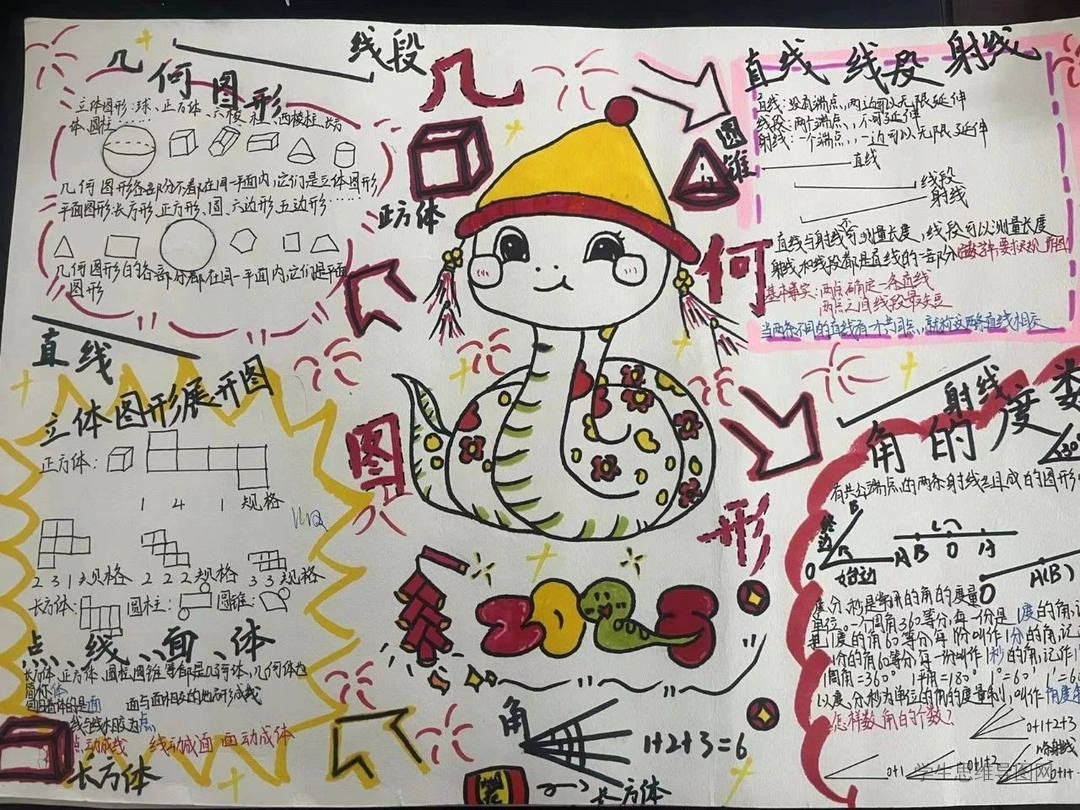 几何图形
立体图形:球、正方体、六棱柱、四棱柱、长方
体、圆柱……
几何图形各部分不都在同一平面内,它们是立体图形
平面图形:长方形、正方形、圆、六边形、五边形……
几何图形的各部分都在同一平面内,它们是平面
图形
线段
几
何
图
形
正方体
圆锥
直线 线段 射线
直线:没有端点,两边可以无限延伸
线段:两个端点,不可延伸
射线:一个端点,一边可以无限延伸
直线
线段
射线
直线与射线不可测量长度,线段可以测量长度
射线和线段都是直线的一部分
基本事实:两点确定一条直线
两点之间线段最短
当两条不同的直线有一个公共点,就称这两条直线相交
直线
立体图形展开图
正方体:
1 4 1 规格
2 3 1 规格 2 2 2 规格 3 3 规格
长方体: 圆柱: 圆锥:
点、线、面、体
长方体、正方体、圆柱、圆锥等都是几何体,几何体也
简称体
包围着体的是面 面与面相交的地方形成线
线与线相交为点
点动成线 线动成面 面动成体
长方体
2025
角
1+2+3=6
长方体
射线
角的度
有共公端点的两条射线组成的图形
终边
B
O
始边
A
B O A
O A(B)
度、分、秒是常用的角的度量
单位。一个周角360等分,每一份是1度的角,
把1度的角60等分,每一份叫作1分的角,记
1分的角60等分,每一份叫作1秒的角,记作1
1周角=360° 1平角=180° 1°=60′ 1′=6
以度、分、秒为单位的角的度量制,叫作角度
怎样数角的个数?
0+1
0+1+2
0+1+2+3
n条射线
0+1+
学生思维导图网